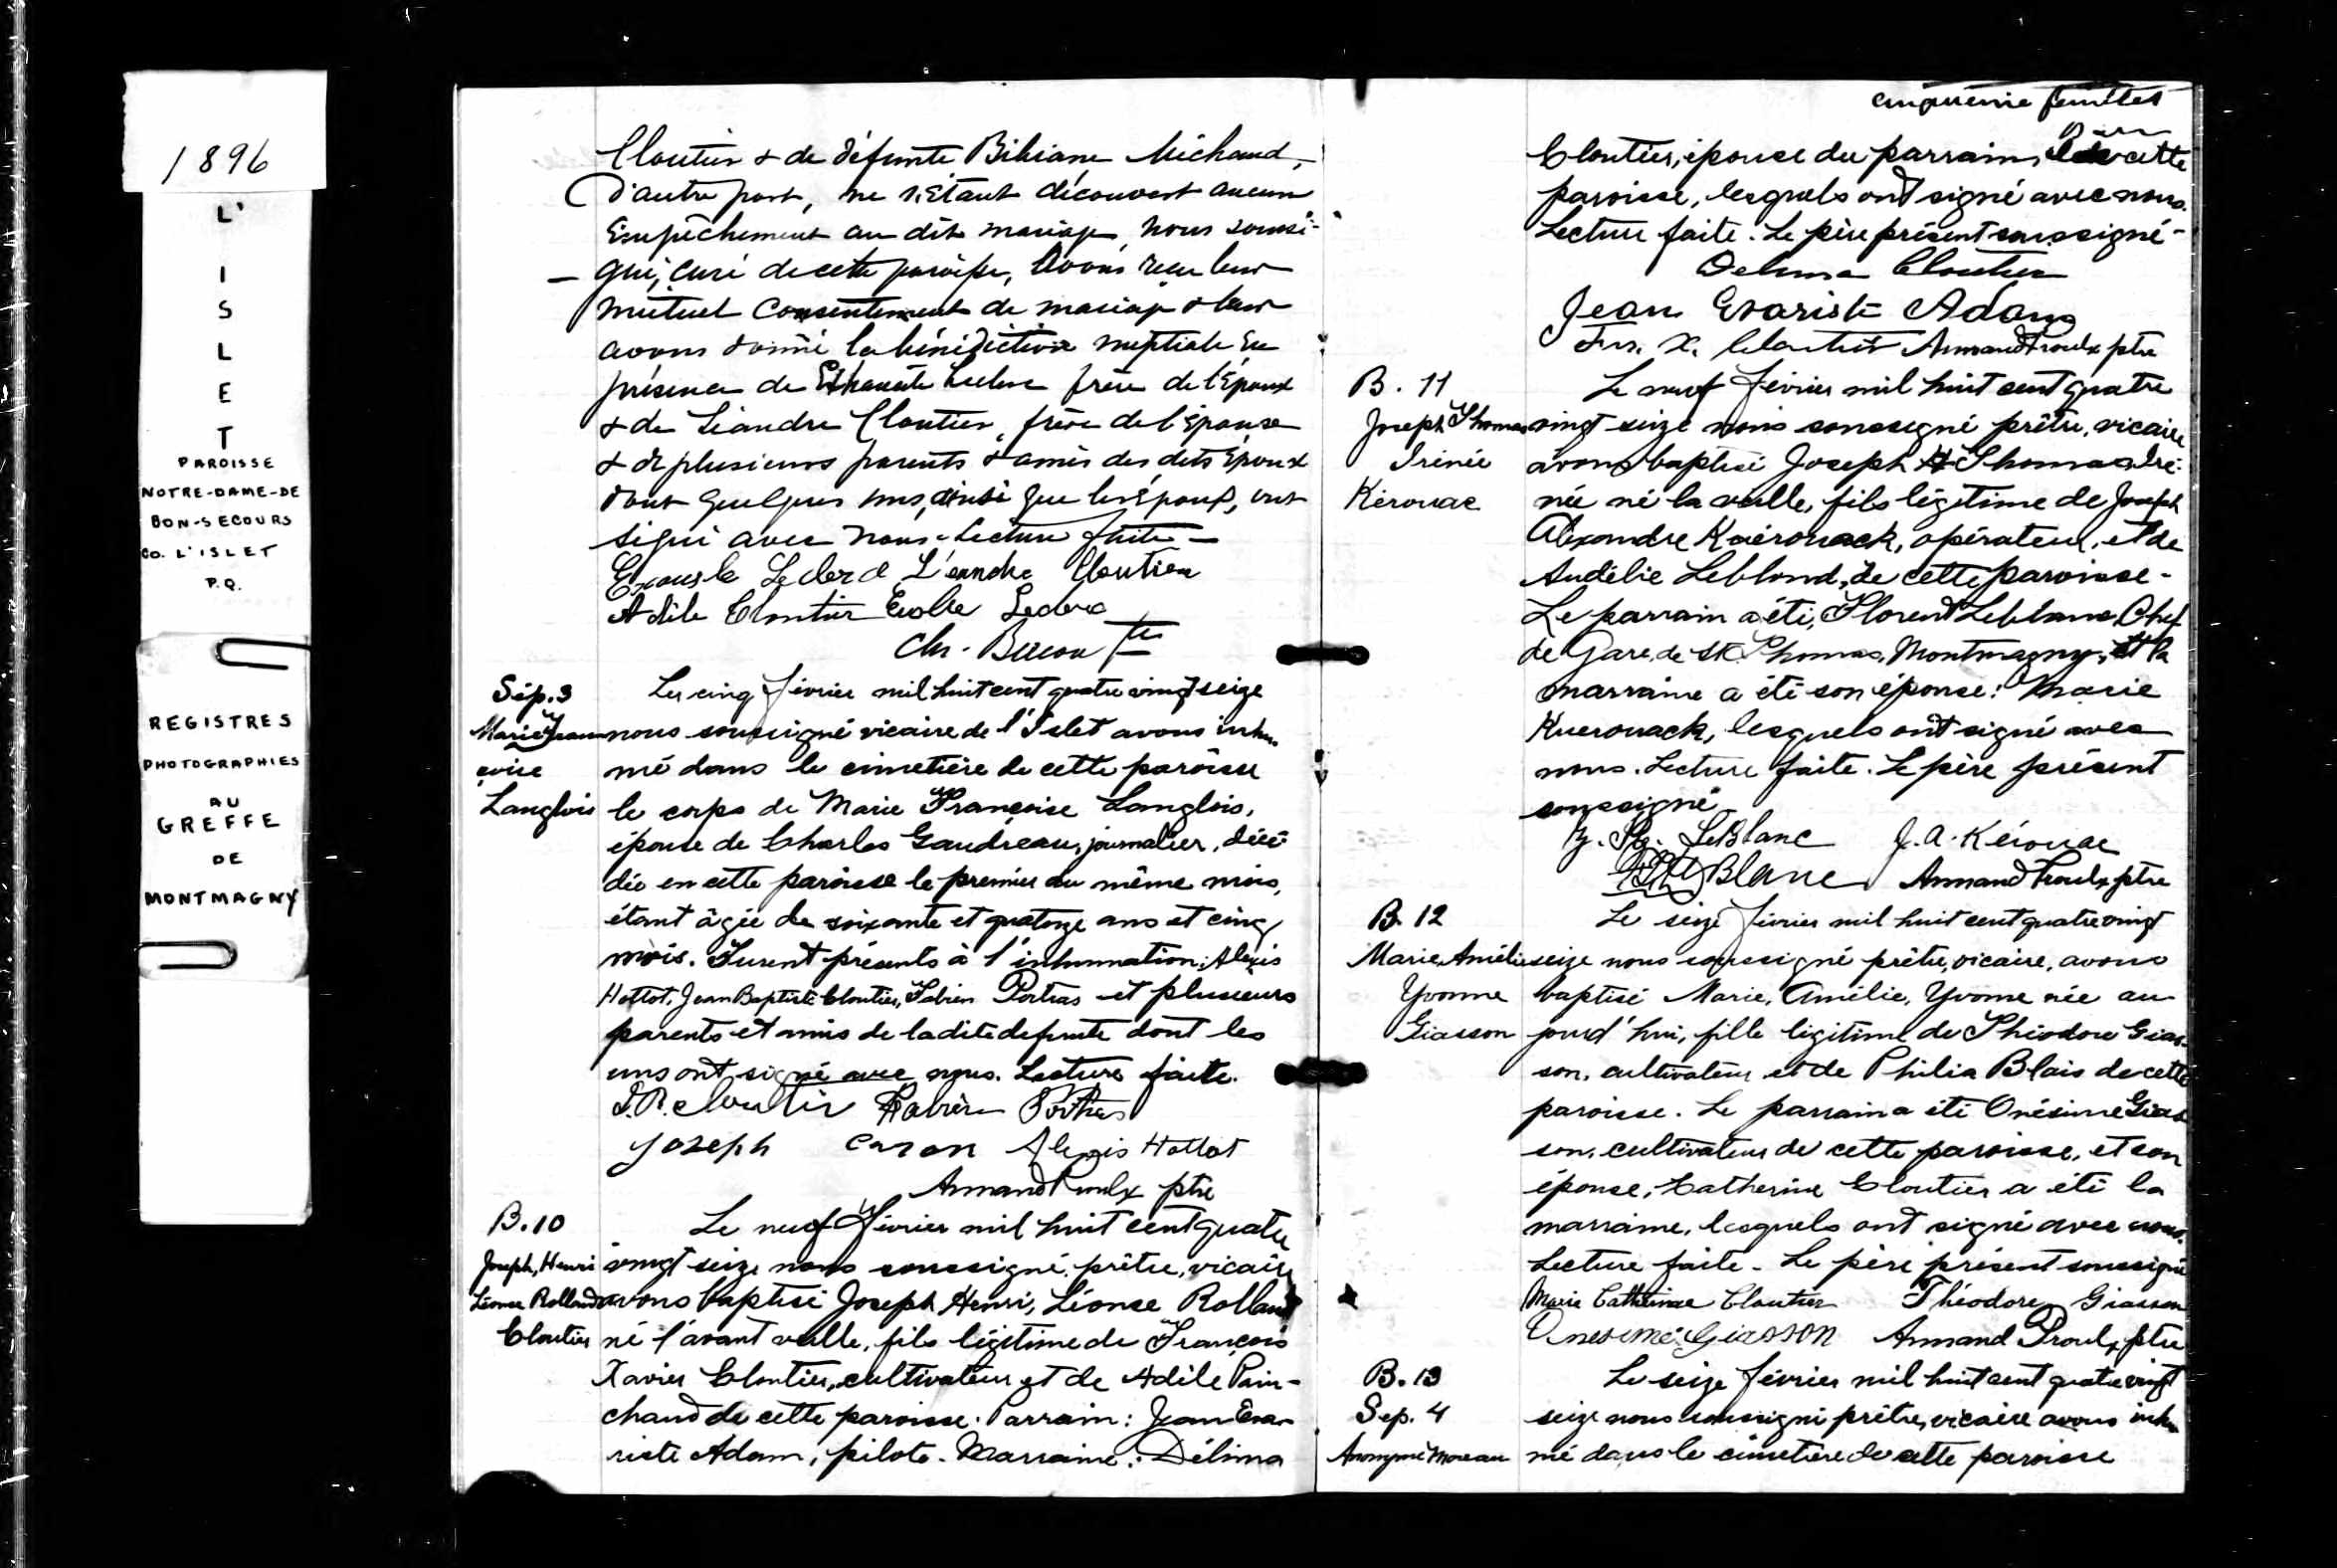 1896
L'
I
S
L
E
T
PAROISSE
NOTRE-DAME-DE
BON-SECOURS
CO. L'ISLET
P.Q.
REGISTRES
PHOTOGRAPHIES
AU
GREFFE
DE
MONTMAGNY
Cloutier & de défunte Bibiane Michaud,
d'autre part, ne s'étant découvert aucun
Empêchement au dit mariage, nous soussi-
gné, curé de cette paroisse, avons reçu leur
mutuel consentement de mariage & leur
avons donné la bénédiction nuptiale en
présence de Leclerc frère de l'Époux
& de Léandre Cloutier, frère de l'Épouse
& de plusieurs parents & amis des dits Époux
dont quelques uns, ainsi que les époux, ont
signé avec nous. Lecture faite —
Leclerd Léandre Cloutier
Adèle Cloutier Leclerc
Ch. Bacon Ptre
Sép. 3
Marie Fran
çoise
Langlois
Le cinq février mil huit cent quatre vingt seize
nous soussigné vicaire de l'Islet avons inhu
mé dans le cimetière de cette paroisse
le corps de Marie Françoise Langlois,
épouse de Charles Gaudreau, journalier, décé-
dée en cette paroisse le premier du même mois,
étant âgée de soixante et quatorze ans et cinq
mois. Furent présents à l'inhumation: Alexis
Hottot, Jean Baptiste Cloutier, Fabien Poitras et plusieurs
parents et amis de ladite defunte dont les
uns ont signé avec nous. Lecture faite.
J.B. Cloutier Fabien Poitras
Joseph Caron Alexis Hottot
Armand Proulx ptre
B. 10
Joseph, Henri
Léonse Rolland
Cloutier
Le neuf février mil huit cent quatre
vingt seize nous soussigné, prêtre, vicaire
avons baptisé Joseph Henri, Léonse Rolland
né l'avant veille, fils légitime de François
Xavier Cloutier, cultivateur et de Adèle Pain-
chaud de cette paroisse. Parrain: Jean Eva-
riste Adam, pilote. Marraine: Délima
cinquième feuillet
Cloutier, épouse du parrain, de cette
paroisse, lesquels ont signé avec nous.
Lecture faite. Le père présent soussigné -
Delima Cloutier
Jean Evariste Adam
Frs. X. Cloutier Armand Proulx ptre
B. 11
Joseph Thomas
Irénée
Kérouac
Le neuf février mil huit cent quatre
vingt seize nous soussigné prêtre, vicaire
avons baptisé Joseph Thomas Iré-
née né la veille, fils légitime de Joseph
Alexandre Kuérouack, opérateur, et de
Audélie Leblond, de cette paroisse -
Le parrain a été, Florent Leblanc, Chef
de Gare, de St. Thomas, Montmagny, et la
marraine a été son épouse: Marie
Kuerouack, lesquels ont signé avec
nous. Lecture faite. Le père présent
soussigné
LeBlanc J. A. Kérouac
Blanc Armand Proulx ptre
B. 12
Marie, Amélie
Yvonne
Giasson
Le seize février mil huit cent quatre vingt
seize nous soussigné prêtre, vicaire, avons
baptisé Marie, Amélie, Yvonne née au
jourd'hui, fille légitime de Théodore Gias-
son, cultivateur et de Philia Blais de cette
paroisse. Le parrain a été Onésime Gias
son, cultivateur de cette paroisse, et son
épouse, Catherine Cloutier a été la
marraine, lesquels ont signé avec nous.
Lecture faite - Le père présent soussigné
Marie Catherine Cloutier Théodore Giasson
Onesime Giasson Armand Proulx ptre
B. 13
Sep. 4
Anonyme Moreau
Le seize février mil huit cent quatre vingt
seize nous soussigné prêtre, vicaire avons inhu
mé dans le cimetière de cette paroisse